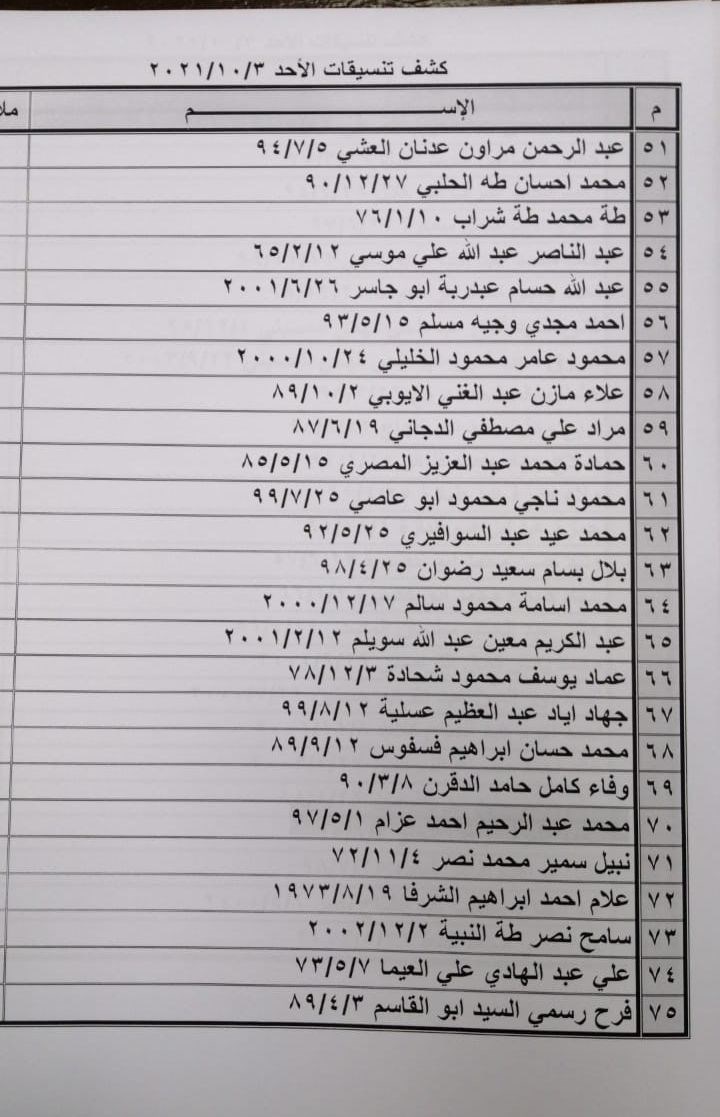 كشف تنسيقات الأحد ٢٠٢١/١٠/٣
م الإســــــــــم ملا
٥١ عبد الرحمن مراون عدنان العشي ٩٤/٧/٥
٥٢ محمد احسان طه الحلبي ٩٠/١٢/٢٧
٥٣ طة محمد طة شراب ٧٦/١/١٠
٥٤ عبد الناصر عبد الله علي موسي ٦٥/٢/١٢
٥٥ عبد الله حسام عبدربة ابو جاسر ٢٠٠١/٦/٢٦
٥٦ احمد مجدي وجيه مسلم ٩٣/٥/١٥
٥٧ محمود عامر محمود الخليلي ٢٠٠٠/١٠/٢٤
٥٨ علاء مازن عبد الغني الايوبي ٨٩/١٠/٢
٥٩ مراد علي مصطفي الدجاني ٨٧/٦/١٩
٦٠ حمادة محمد عبد العزيز المصري ٨٥/٥/١٥
٦١ محمود ناجي محمود ابو عاصي ٩٩/٧/٢٥
٦٢ محمد عيد عبد السوافيري ٩٢/٥/٢٥
٦٣ بلال بسام سعيد رضوان ٩٨/٤/٢٥
٦٤ محمد اسامة محمود سالم ٢٠٠٠/١٢/١٧
٦٥ عبد الكريم معين عبد الله سويلم ٢٠٠١/٢/١٢
٦٦ عماد يوسف محمود شحادة ٧٨/١٢/٣
٦٧ جهاد اياد عبد العظيم عسلية ٩٩/٨/١٢
٦٨ محمد حسان ابراهيم فسفوس ٨٩/٩/١٢
٦٩ وفاء كامل حامد الدقرن ٩٠/٣/٨
٧٠ محمد عبد الرحيم احمد عزام ٩٧/٥/١
٧١ نبيل سمير محمد نصر ٧٢/١١/٤
٧٢ علام احمد ابراهيم الشرفا ١٩٧٣/٨/١٩
٧٣ سامح نصر طة النبية ٢٠٠٢/١٢/٢
٧٤ علي عبد الهادي علي العيما ٧٣/٥/٧
٧٥ فرح رسمي السيد ابو القاسم ٨٩/٤/٣